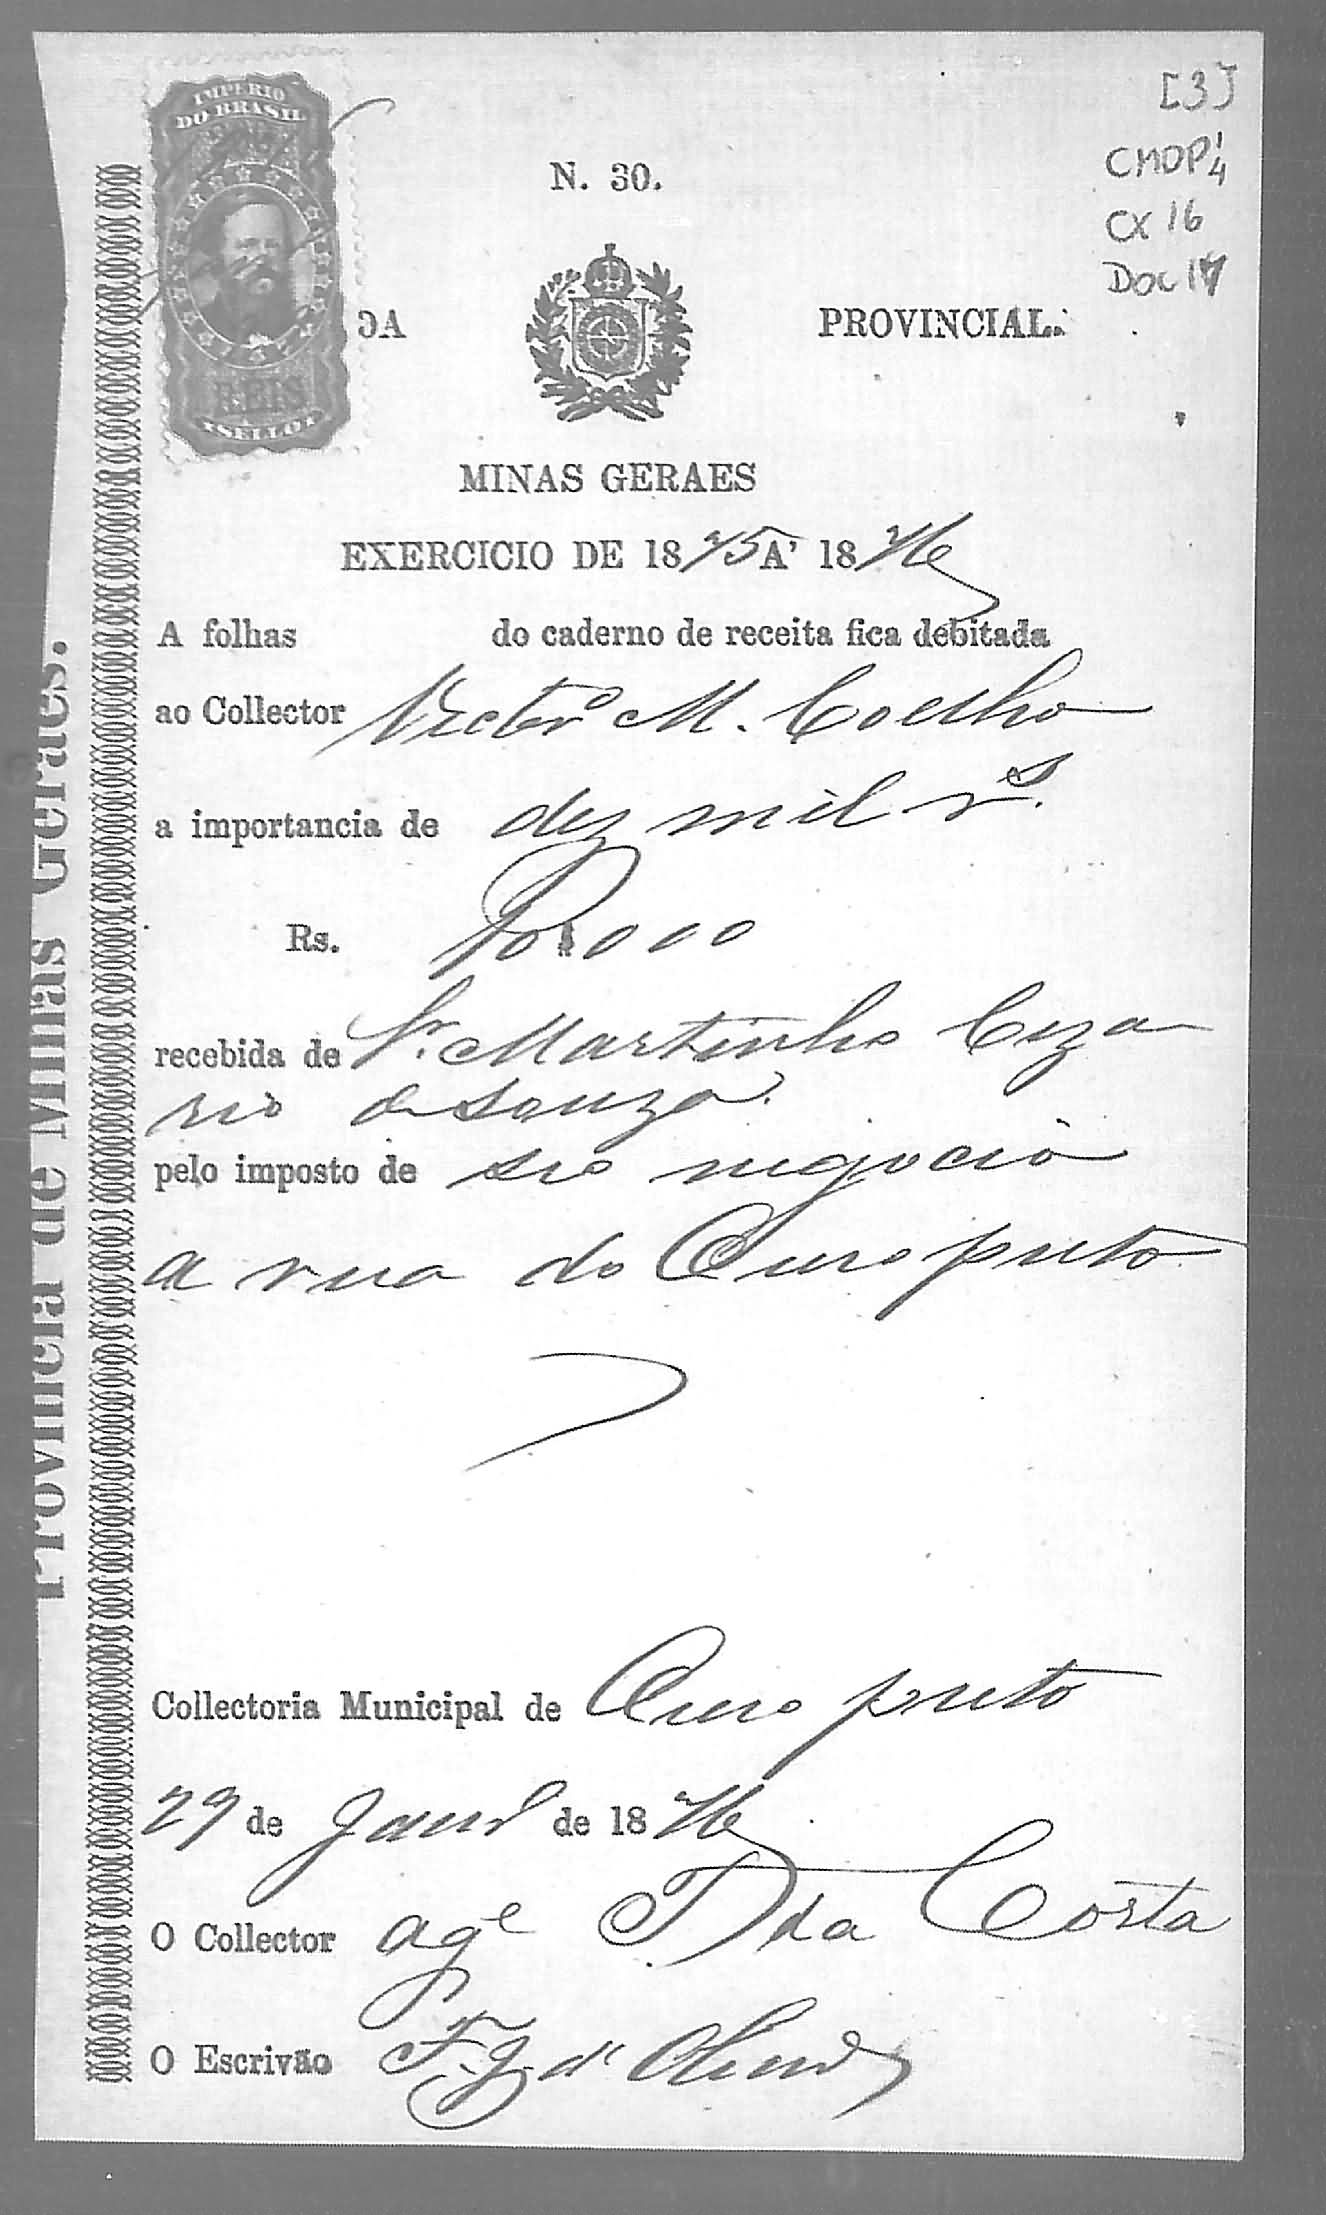 [3]
CMOP 1/4
CX 16
DOC 17
IMPERIO
DO BRASIL
REIS
SELLO
N. 30.
DA PROVINCIAL.
MINAS GERAES
EXERCICIO DE 1875 A' 1876
A folhas do caderno de receita fica debitada
ao Collector Victor M. Coelho
a importancia de dez mil rs.
Rs. 10$000
recebida de Sr. Martinho Ceza
rio de Souza
pelo imposto de seo negocio
a rua do Ouro preto
Collectoria Municipal de Ouro preto
29 de Janrº de 1876
O Collector age T da Costa
O Escrivão F. J. d' Olivrª
Provincia de Minas Geraes.